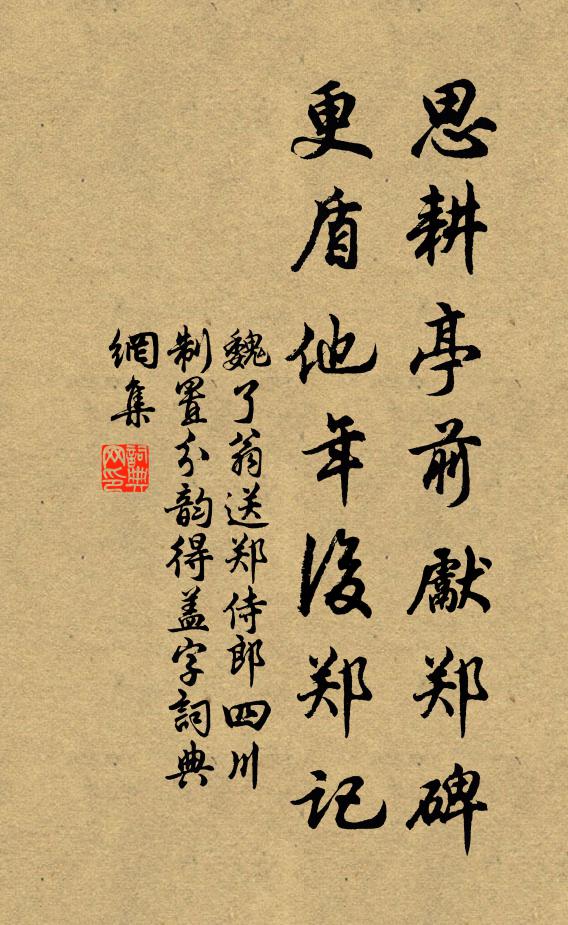 思耕亭前獻郑碑
更盾他年後郑记
魏了翁送郑侍郎四川
制置分韵得盖字詞典
網集
詞典
网印